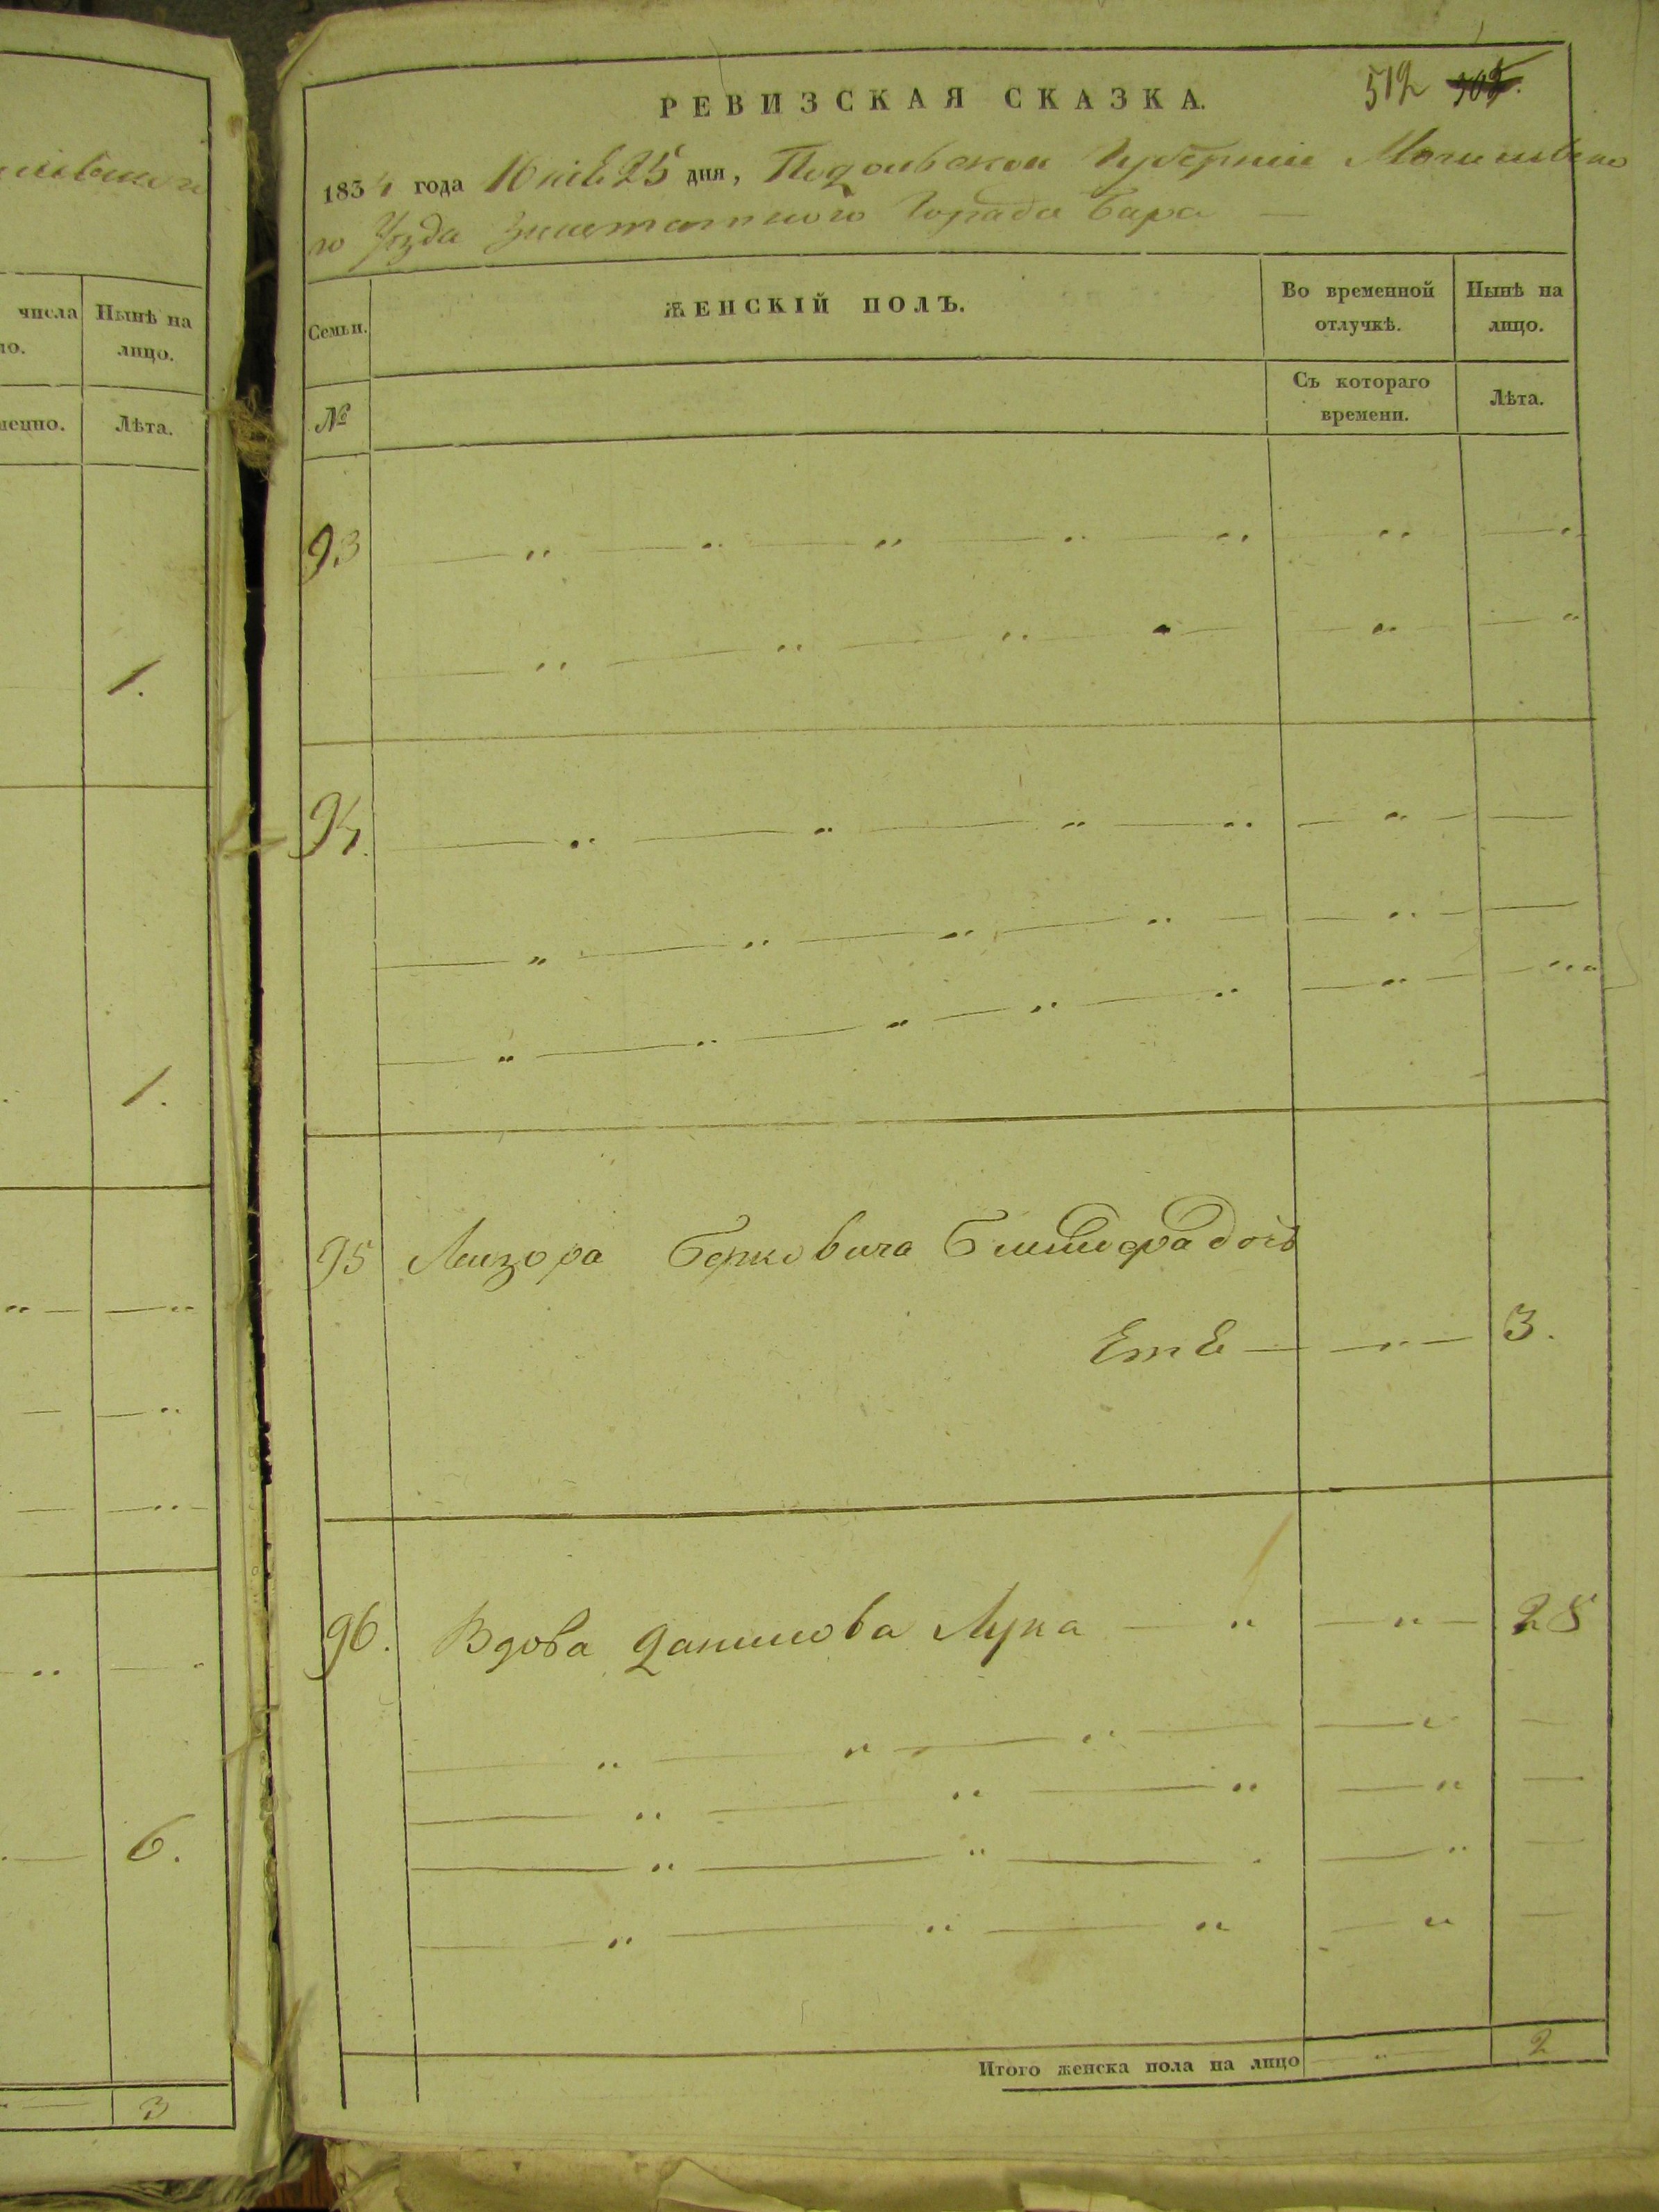 числа
Нынѣ на
лицо.
Лѣта.
1.
1.
6.
3
РЕВИЗСКАЯ СКАЗКА.
512
1834 года Юніѣ 25 дня, Подольскои Губерніи Могилевска
го Уѣзда Заштатного Города Бара —
Семьи.
ЖЕНСКІЙ ПОЛЪ.
Во временной
отлучкѣ.
Нынѣ на
лицо.
№
Съ котораго
времени.
Лѣта.
93
94.
95 Лейзора Берковича дочь
3.
96. Вдова Данилова Лука — " — " — 28
Итого женска пола на лицо
2